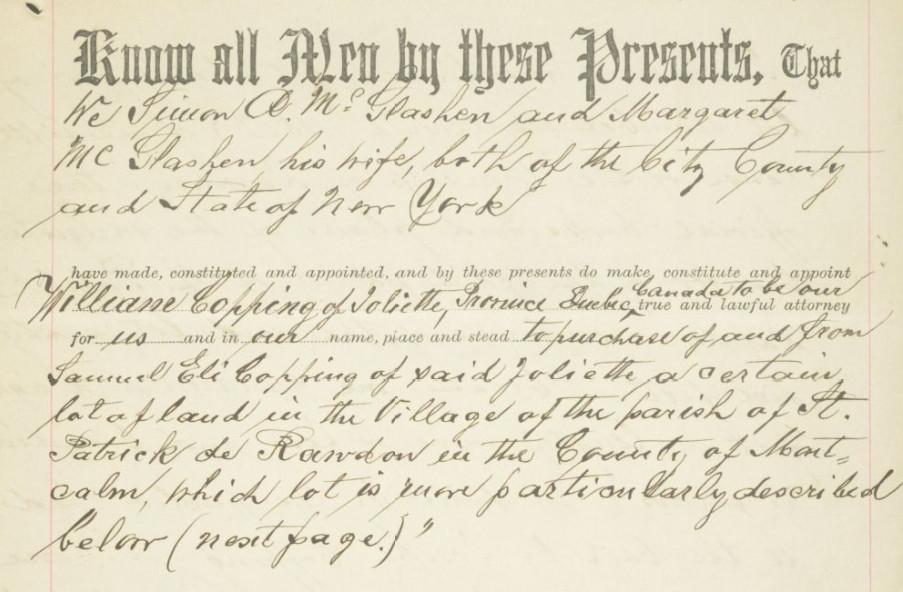 Know all Men by these Presents, That
We Simon A. Mc Glashen and Margaret
Mc Glashen, his wife, both of the City County
and State of New York
have made, constituted and appointed, and by these presents do make, constitute and appoint
William Copping of Joliette, Province Quebec, Canada to be our true and lawful attorney
for us and in our name, place and stead to purchase of and from
Samuel Eli Copping of said Joliette a certain
lot of land in the Village of the parish of St.
Patrick de Rawdon in the County of Mont=
calm, which lot is more particularly described
below (next page.)"